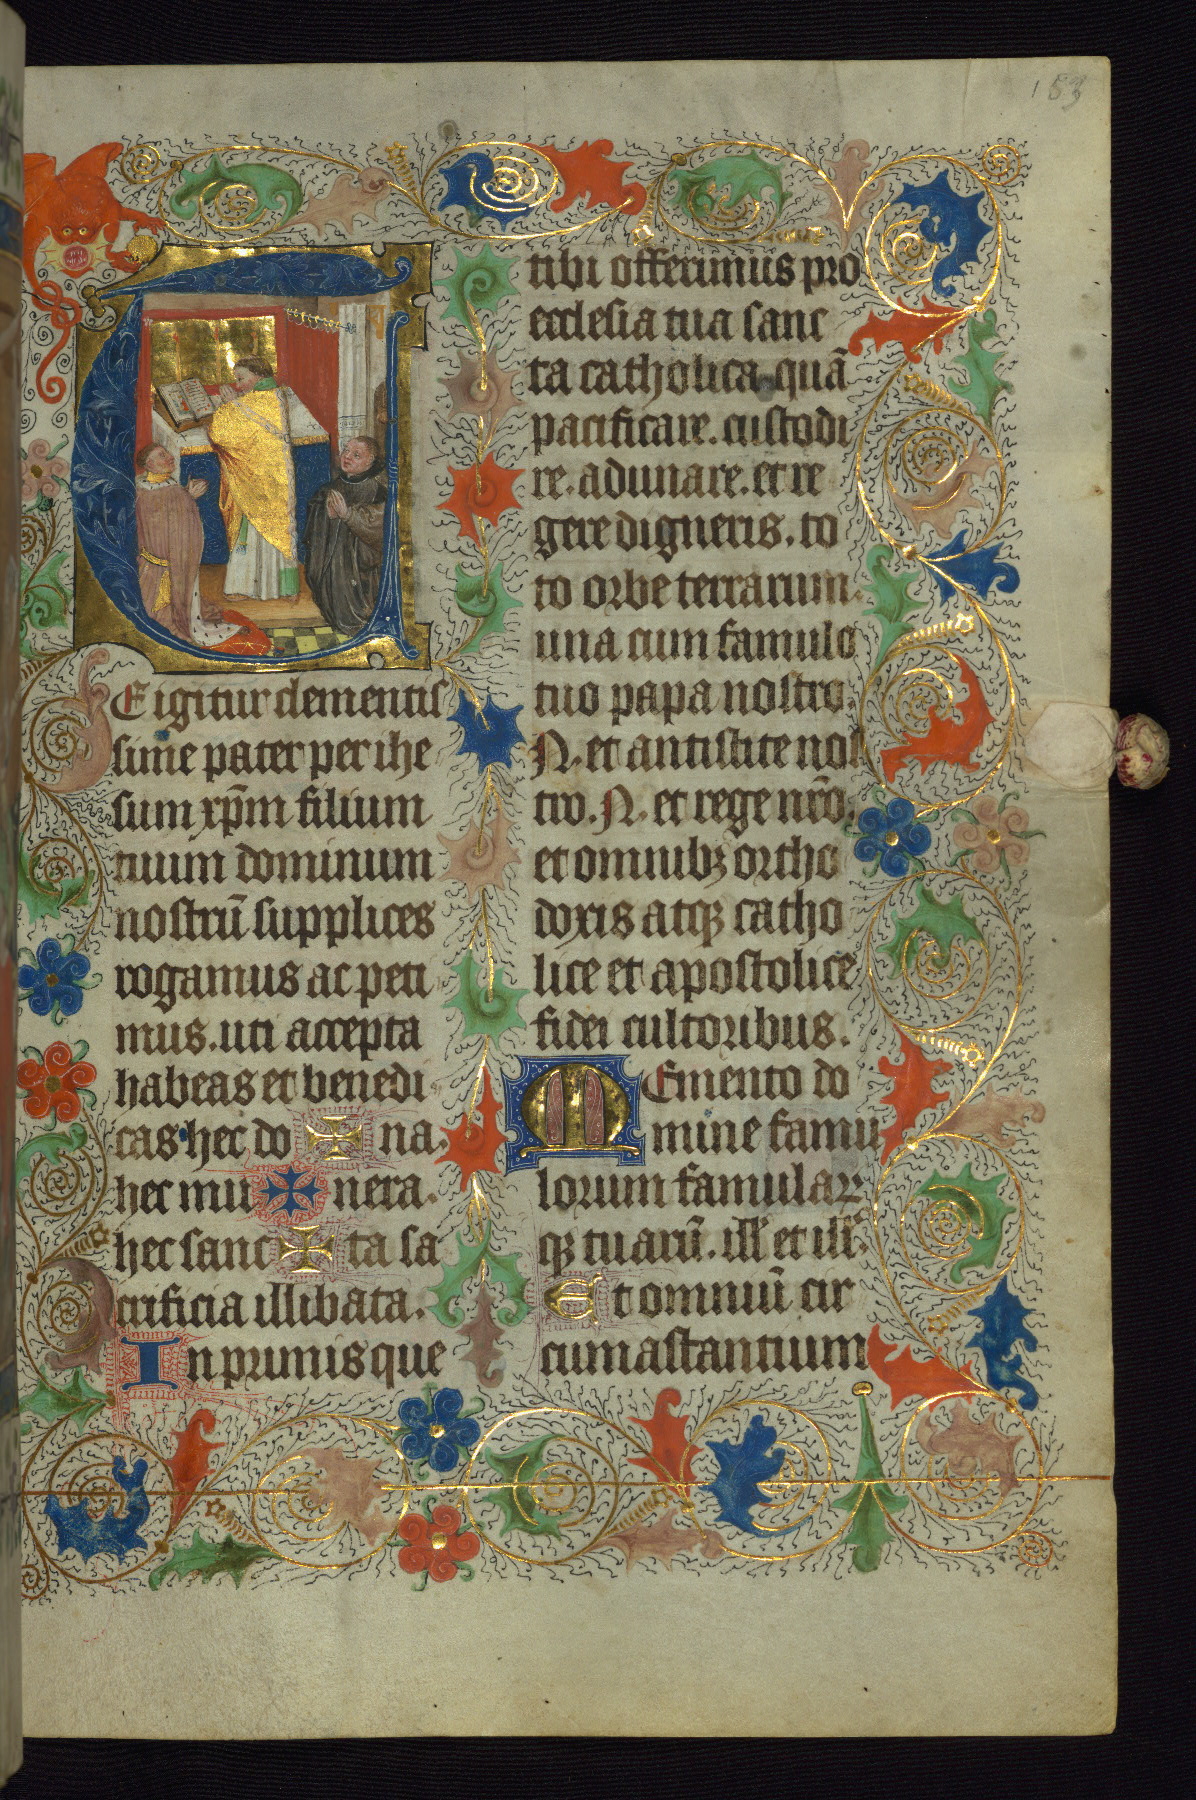 153
TE igitur clementis
sime pater per ihe
sum xp̄m filium
tuum dominum
nostrū supplices
rogamus ac peti
mus. uti accepta
habeas et benedi
cas hec do ✠ na.
hec mu ✠ nera.
hec sanc ✠ ta sa
crificia illibata.
In primis que
tibi offerimus pro
ecclesia tua sanc
ta catholica. quā
pacificare. custodi
re. adunare. et re
gere digneris. to
to orbe terrarum.
una cum famulo
tuo papa nostro.
N. et antistite nos
tro. N. et rege nr̄o.
et omnibꝫ ortho
doxis atqꝫ catho
lice et apostolice
fidei cultoribus.
Memento do
mine famu
lorum famulaꝝ
qꝫ tuarū. ill' et ill'.
Et omniū cir
cumastantium